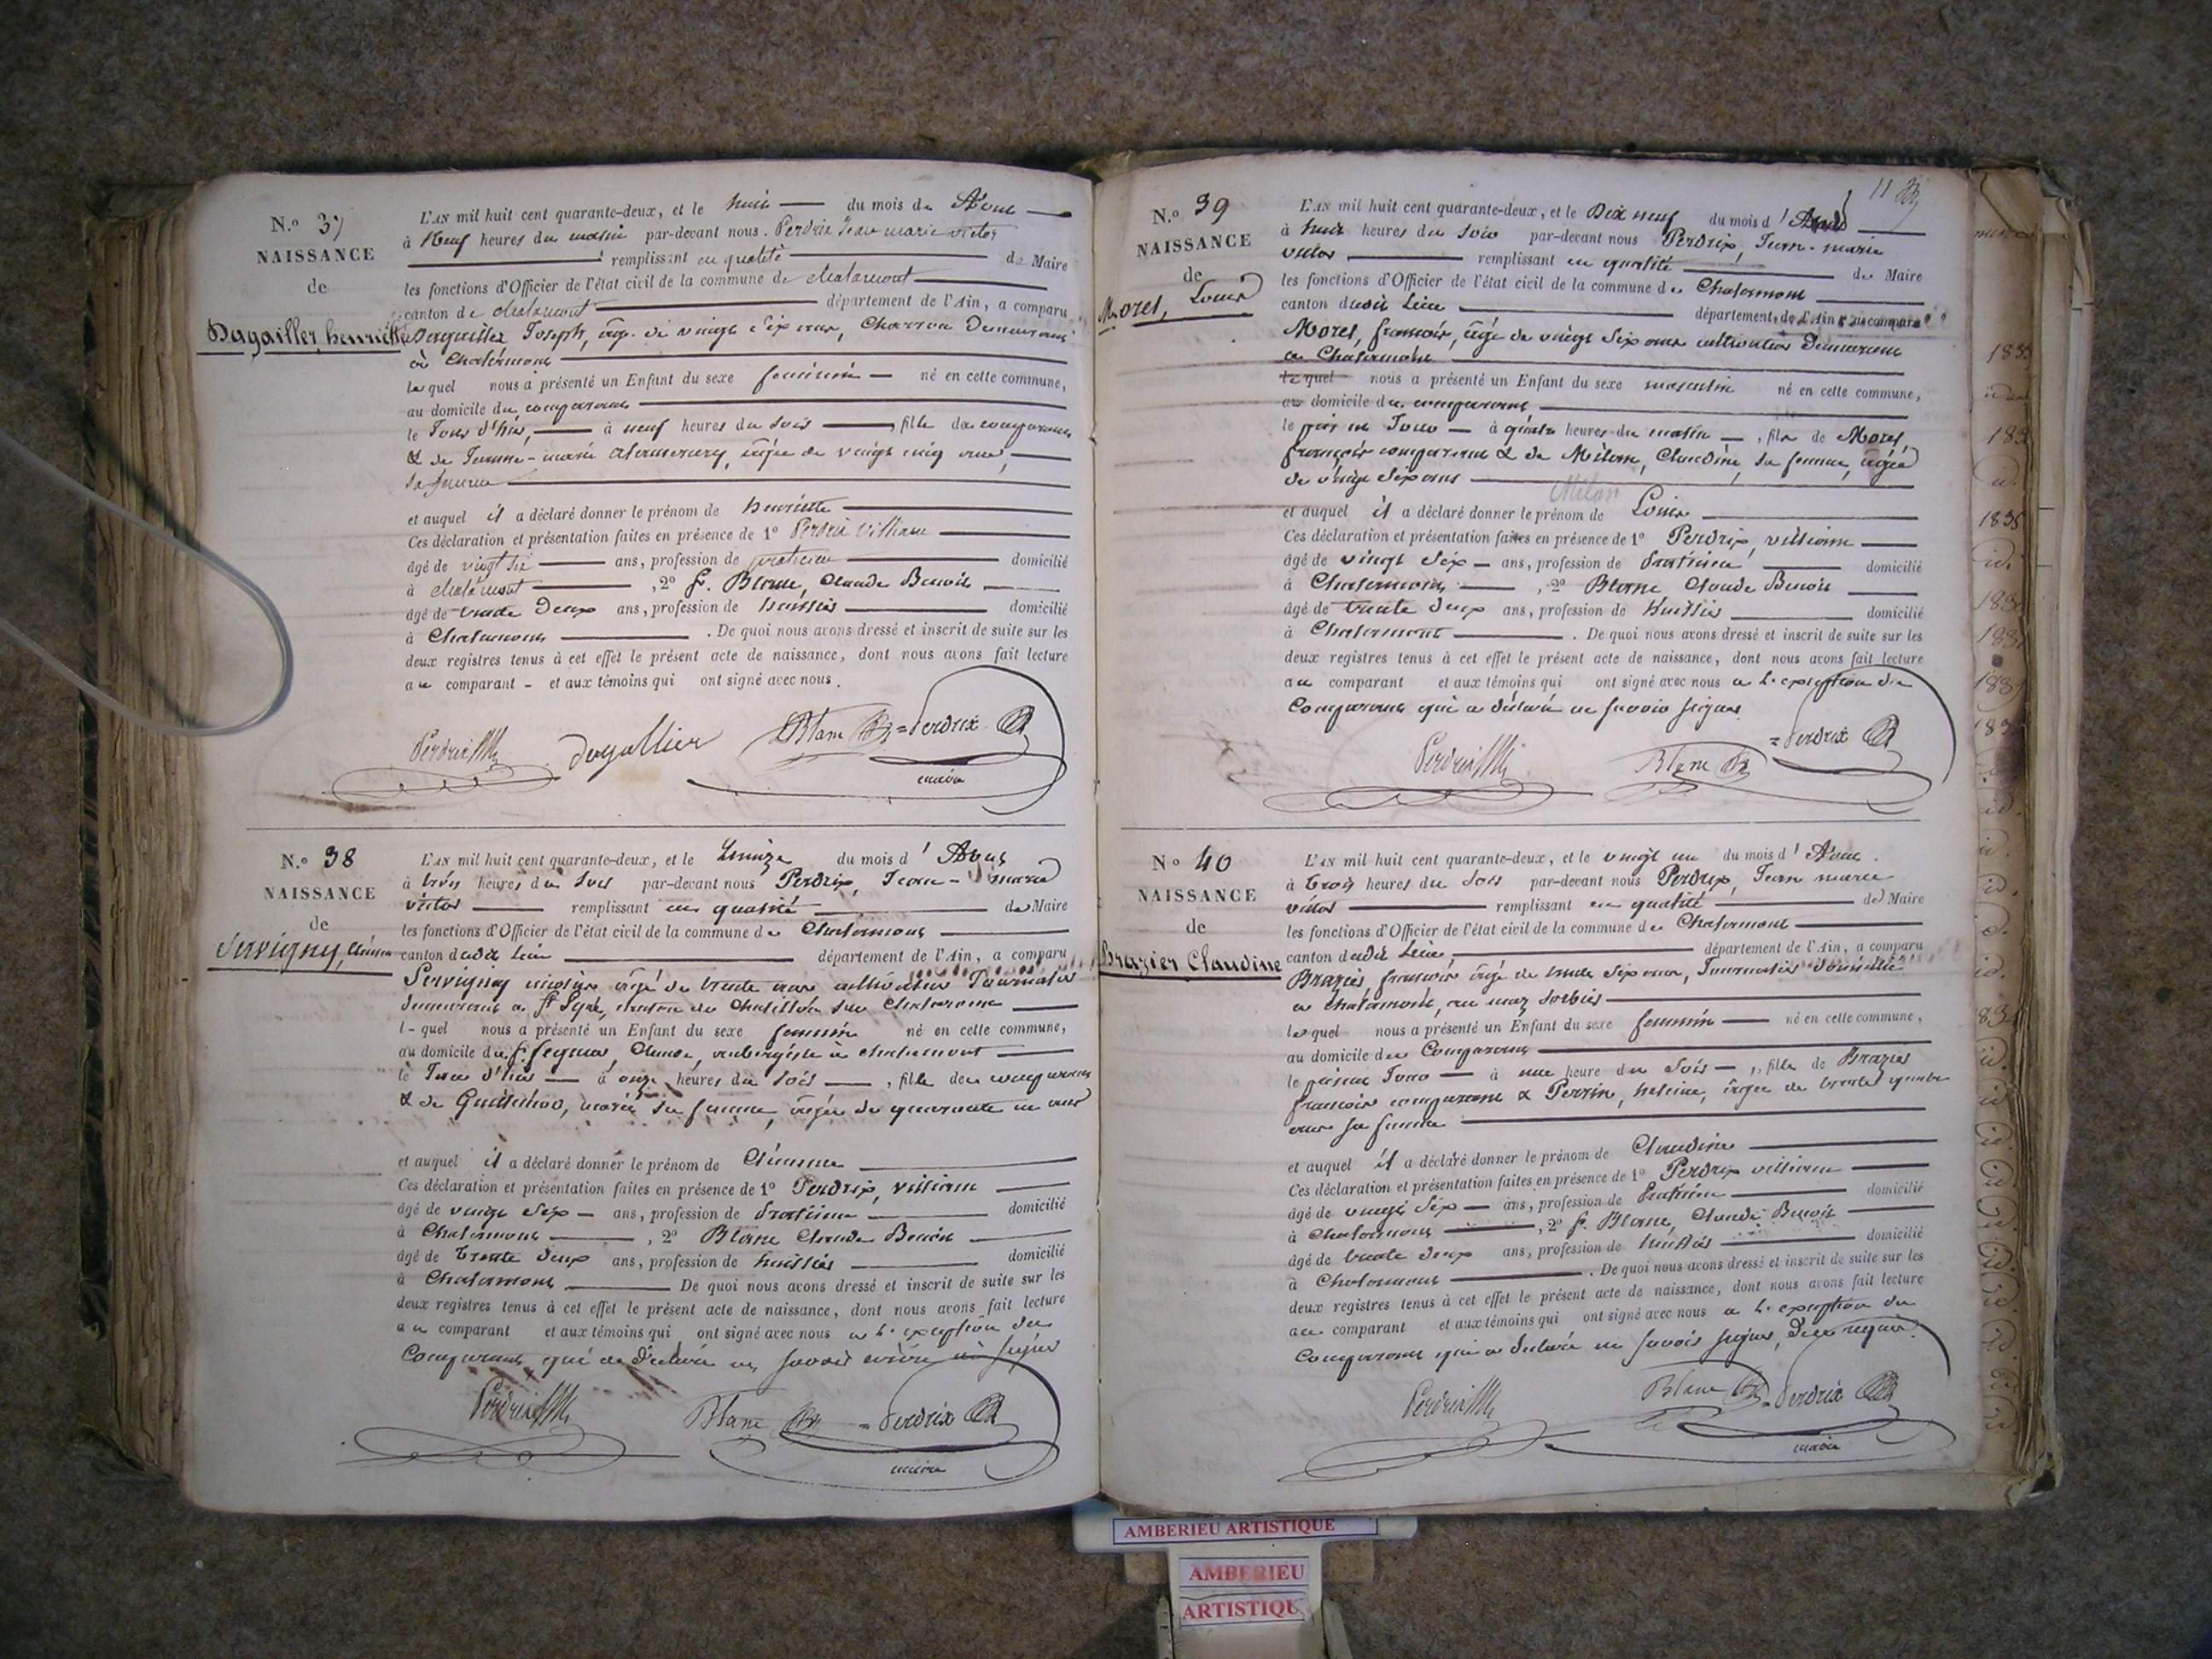 N.º 37
NAISSANCE
de
Dagallier, henriette
L'AN mil huit cent quarante-deux, et le huit du mois de Aout
à Neuf heures du matin par-devant nous Perdrix Jean marie victor
remplissant en qualité de Maire
les fonctions d'Officier de l'état civil de la commune de Chalamont
canton de Chalamont département de l'Ain, a comparu
Dagallier Joseph, âgé de vingt six ans, Charron Demeurant
à Chalamont
lequel nous a présenté un Enfant du sexe féminin né en cette commune,
au domicile du comparant
le Jour d'hier, à neuf heures du soir, fille du comparant
& de Jeanne-marie âgée de vingt cinq ans,
sa femme
et auquel il a déclaré donner le prénom de henriette
Ces déclaration et présentation faites en présence de 1º Perdrix William
âgé de vingt six ans, profession de praticien domicilié
à Chalamont, 2º S. Blanc, Claude Benoit
âgé de trente Deux ans, profession de huissier domicilié
à Chalamont. De quoi nous avons dressé et inscrit de suite sur les
deux registres tenus à cet effet le présent acte de naissance, dont nous avons fait lecture
au comparant et aux témoins qui ont signé avec nous.
Perdrix dagallier Blanc Perdrix
maire
N.º 38
NAISSANCE
de
Servigny,
L'AN mil huit cent quarante-deux, et le du mois d'Aout
à trois heures du soir par-devant nous Perdrix, Jean-marie
victor remplissant en qualité de Maire
les fonctions d'Officier de l'état civil de la commune de Chalamont
canton dudit lieu département de l'Ain, a comparu
Servigny âgé de trente ans cultivateur Journalier
demeurant a canton de Chatillon sur Chalaronne
lequel nous a présenté un Enfant du sexe féminin né en cette commune,
au domicile du S. Claude, aubergiste à Chalamont
le Jour d'hier à onze heures du soir, fille du comparant
& de marie sa femme, âgée de quarante un ans
et auquel il a déclaré donner le prénom de
Ces déclaration et présentation faites en présence de 1º Perdrix, William
âgé de vingt six ans, profession de Praticien domicilié
à Chalamont, 2º Blanc Claude Benoit
âgé de trente deux ans, profession de huissier domicilié
à Chalamont De quoi nous avons dressé et inscrit de suite sur les
deux registres tenus à cet effet le présent acte de naissance, dont nous avons fait lecture
au comparant et aux témoins qui ont signé avec nous a l'exception du
Comparant qui a déclaré ne savoir écrire ni signer
Perdrix Blanc Perdrix
maire
11
N.º 39
NAISSANCE
de
Morel, Louis
L'AN mil huit cent quarante-deux, et le Dix neuf du mois d'Aout
à huit heures du soir par-devant nous Perdrix, Jean-marie
victor remplissant en qualité de Maire
les fonctions d'Officier de l'état civil de la commune de Chalamont
canton dudit lieu département de l'Ain, a comparu
Morel, françois, âgé de vingt six ans cultivateur Demeurant
a Chalamont
lequel nous a présenté un Enfant du sexe masculin né en cette commune,
au domicile du comparant
le à quatre heures du matin, fils de Morel,
françois comparant & de Milon, Claudine, sa femme, âgée
de vingt six ans
Milan
et auquel il a déclaré donner le prénom de Louis
Ces déclaration et présentation faites en présence de 1º Perdrix, William
âgé de vingt six ans, profession de Praticien domicilié
à Chalamont, 2º Blanc Claude Benoit
âgé de trente deux ans, profession de huissier domicilié
à Chalamont. De quoi nous avons dressé et inscrit de suite sur les
deux registres tenus à cet effet le présent acte de naissance, dont nous avons fait lecture
au comparant et aux témoins qui ont signé avec nous a l'exception du
Comparant qui a déclaré ne savoir signer
Perdrix Blanc Perdrix
Nº 40
NAISSANCE
de
Brazier Claudine
L'AN mil huit cent quarante-deux, et le vingt un du mois d'Aout
à trois heures du soir par-devant nous Perdrix, Jean marie
victor remplissant en qualité de Maire
les fonctions d'Officier de l'état civil de la commune de Chalamont
canton dudit lieu, département de l'Ain, a comparu
Brazier, françois âgé de trente six ans, Journalier domicilié
a Chalamont, au
lequel nous a présenté un Enfant du sexe féminin né en cette commune,
au domicile du Comparant
le présent Jour à une heure du soir, fille de Brazier
françois comparant & Perrin, âgée de trente quatre
ans sa femme
et auquel il a déclaré donner le prénom de Claudine
Ces déclaration et présentation faites en présence de 1º Perdrix William
âgé de vingt six ans, profession de Praticien domicilié
à Chalamont, 2º S. Blanc, Claude Benoit
âgé de trente deux ans, profession de huissier domicilié
à Chalamont. De quoi nous avons dressé et inscrit de suite sur les
deux registres tenus à cet effet le présent acte de naissance, dont nous avons fait lecture
au comparant et aux témoins qui ont signé avec nous a l'exception du
Comparant qui a déclaré ne savoir signer, de ce requis.
Perdrix Blanc Perdrix
maire
AMBERIEU ARTISTIQUE
AMBERIEU
ARTISTIQUE